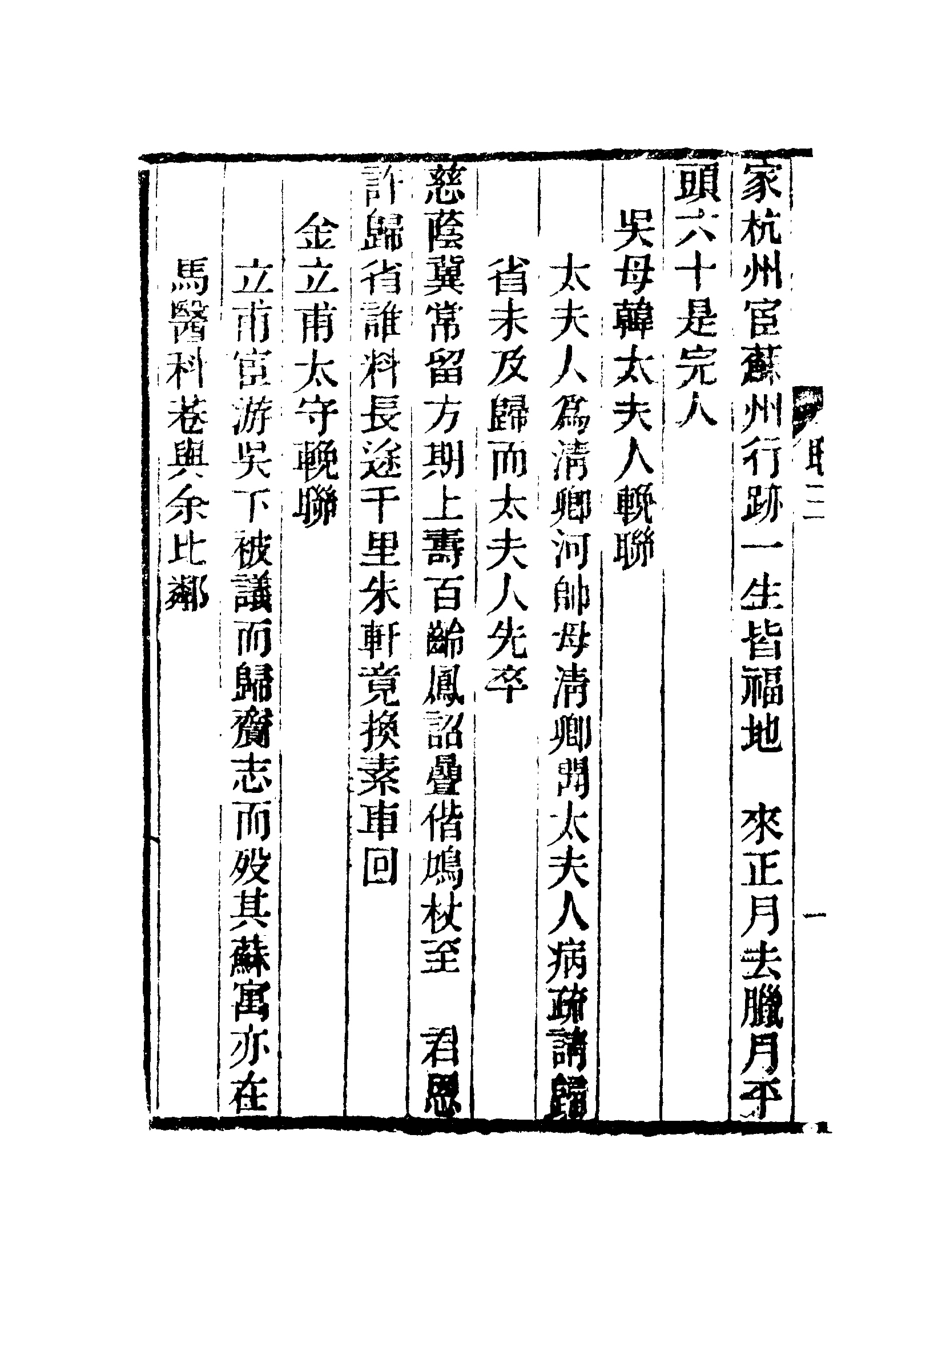 家杭州宦蘇州行跡一生皆福地　來正月去臘月平
頭六十是完人
吳母韓太夫人輓聯
太夫人爲清卿河帥母清卿聞太夫人病疏請歸
省未及歸而太夫人先卒
慈蔭冀常留方期上壽百齡鳳詔疊偕鳩杖至　君恩
許歸省誰料長途千里朱軒竟換素車回
金立甫太守輓聯
立甫宦游吳下被議而歸齎志而歿其蘇寓亦在
馬醫科巷與余比鄰